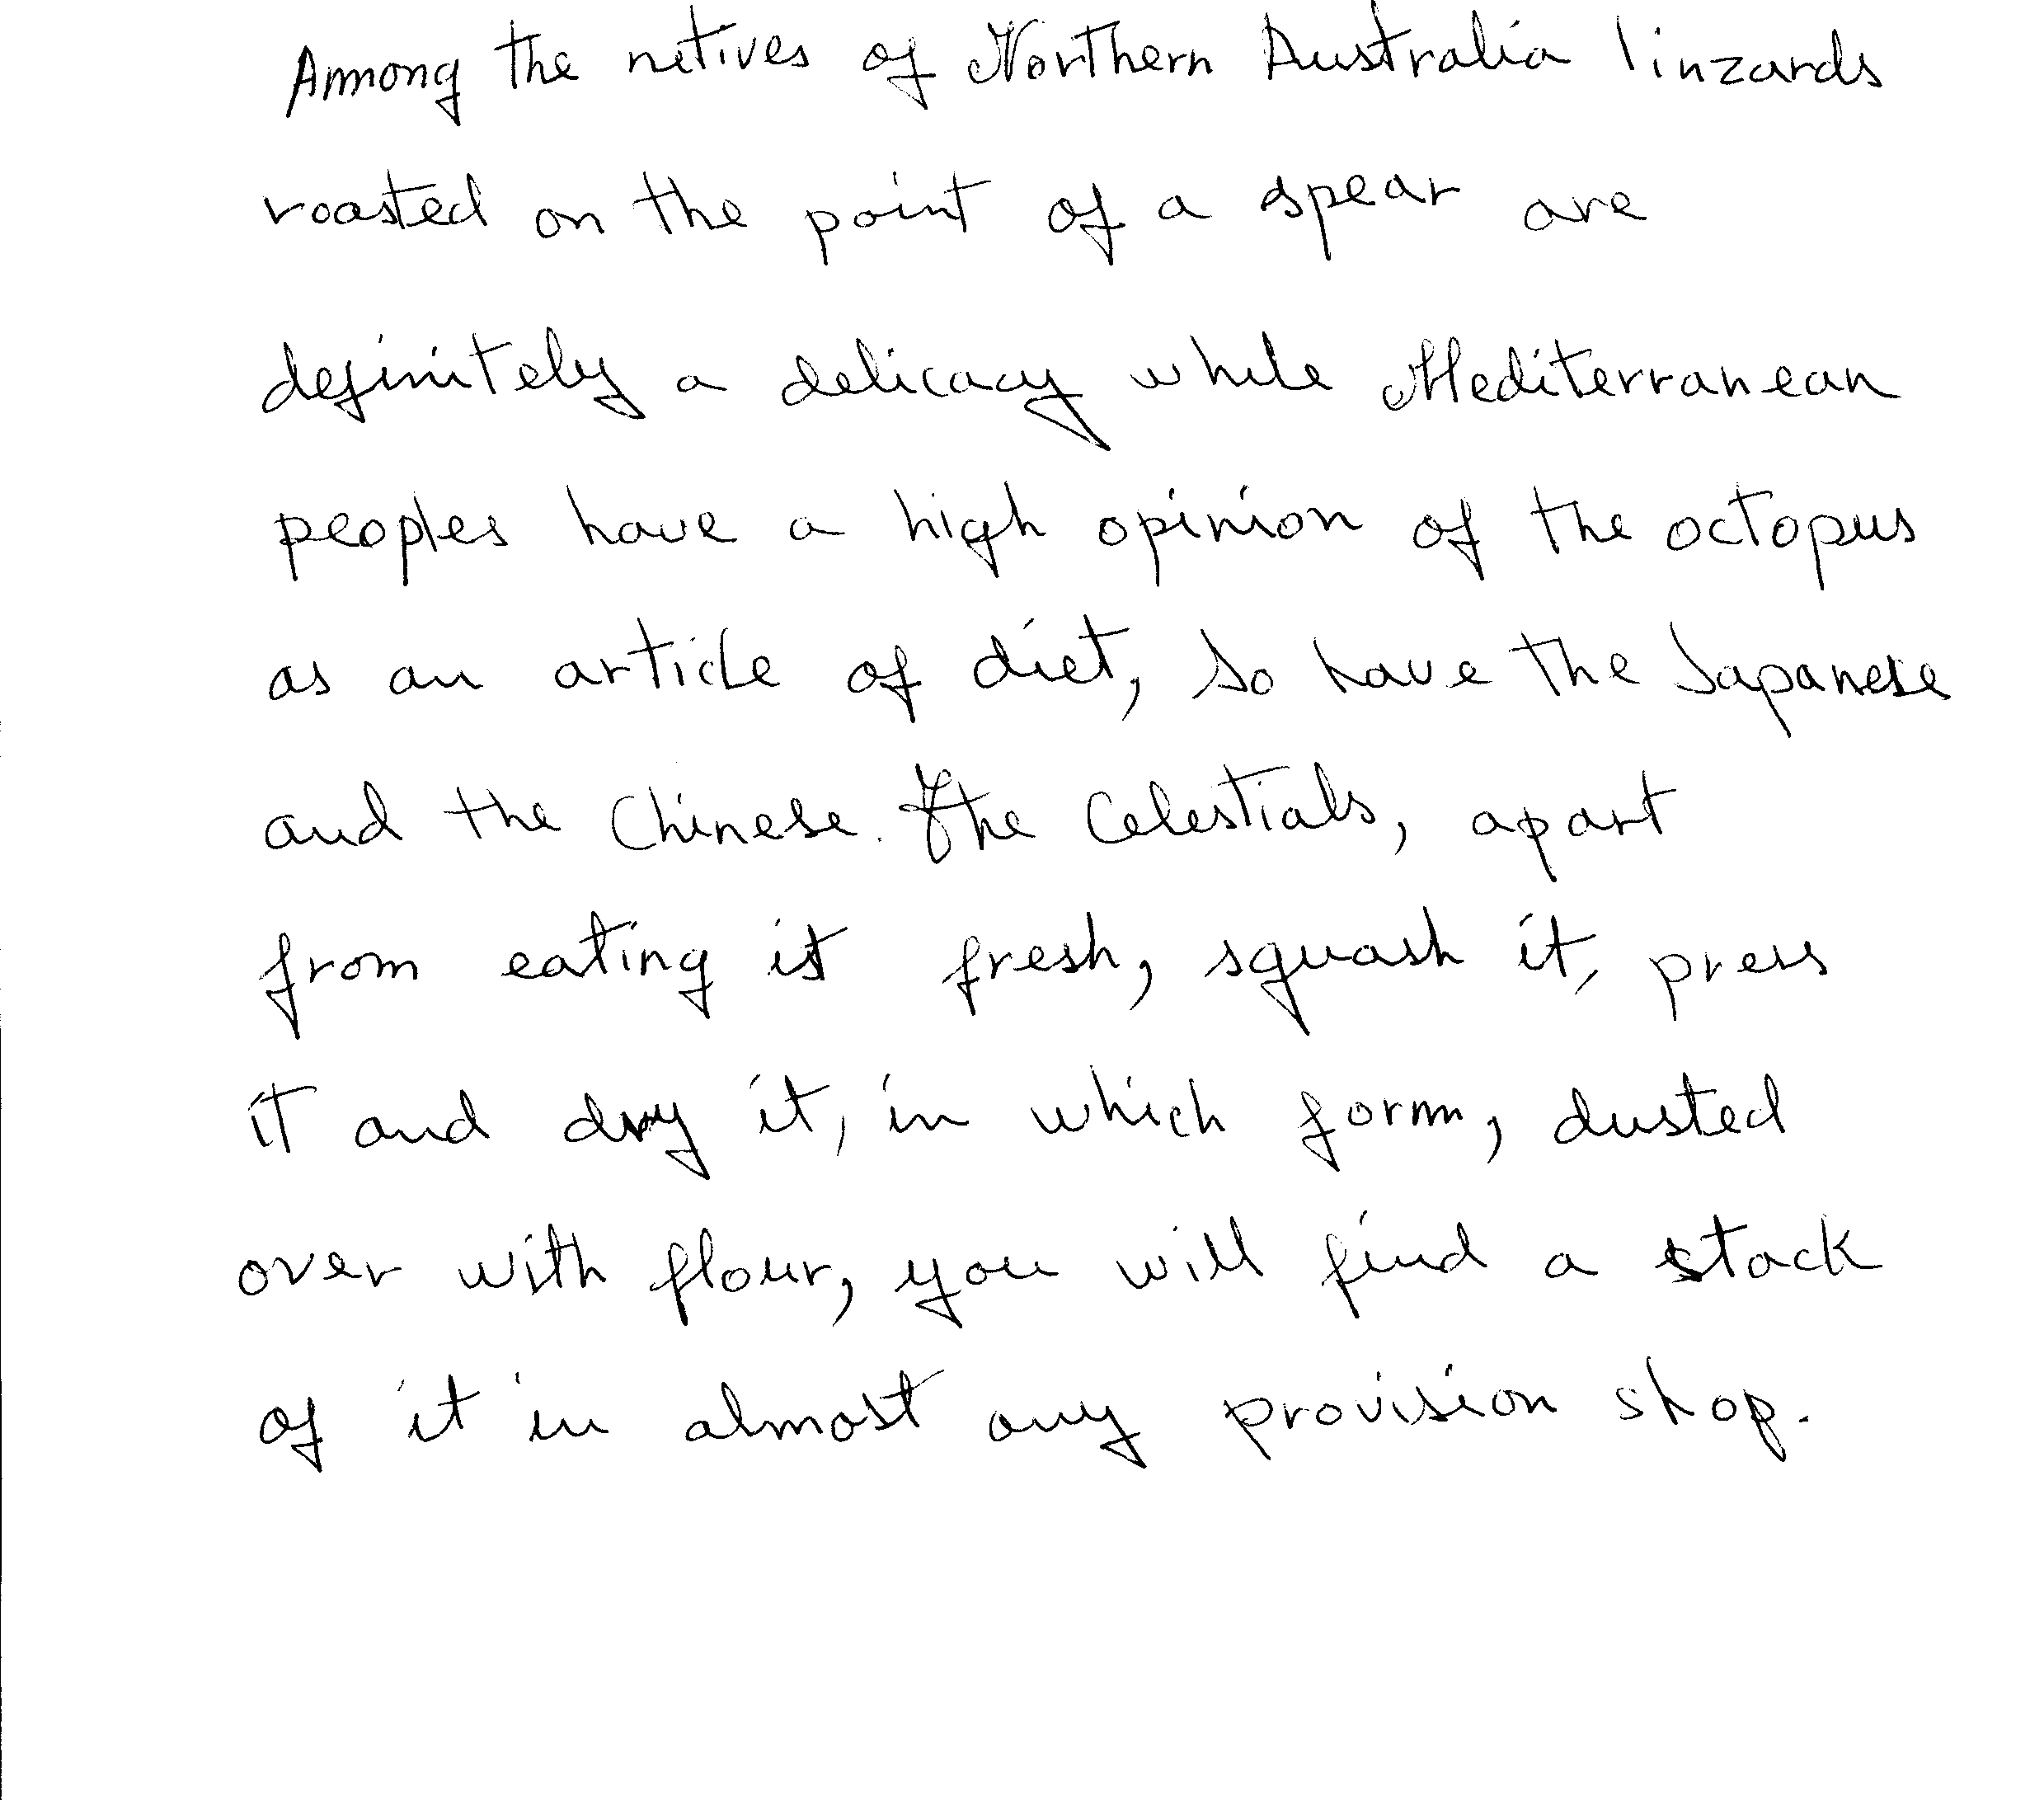 Among the natives of Northern Australia linzards
roasted on the point of a spear are
definitely a delicacy while Mediterranean
peoples have a high opinion of the octopus
as an article of diet, so have the Japanese
and the Chinese. The Celestials, apart
from eating it fresh, squash it, press
it and dry it, in which form, dusted
over with flour, you will find a stack
of it in almost any provision shop.